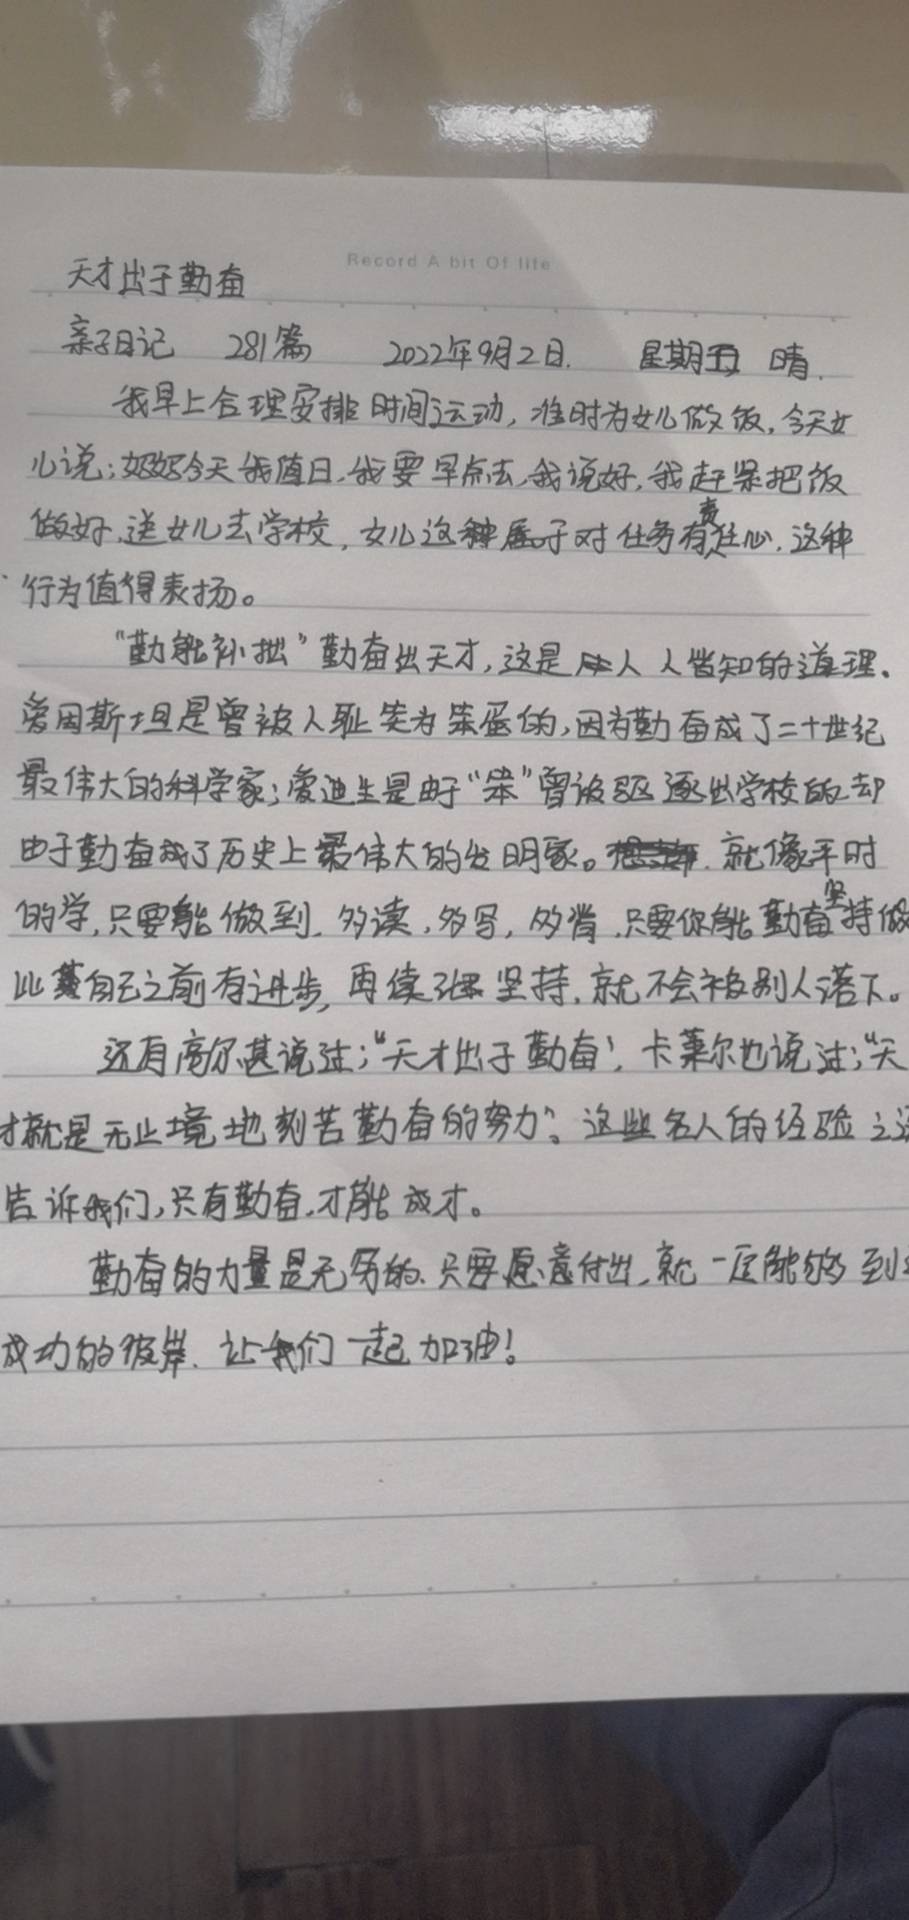 Record A bit Of life
天才出于勤奋
亲子日记 281篇 2022年9月2日. 星期五 晴.
我早上合理安排时间运动,准时为女儿做饭,今天女
儿说:妈妈今天我值日,我要早点去,我说好,我赶紧把饭
做好,送女儿去学校,女儿这种 对任务有责任心.这种
行为值得表扬。
“勤能补拙”勤奋出天才,这是人人皆知的道理.
爱因斯坦是曾被人耻笑为笨蛋的,因为勤奋成了二十世纪
最伟大的科学家;爱迪生是由于“笨”曾被驱逐出学校的却
由于勤奋成了历史上最伟大的发明家。就像平时
的学,只要能做到,多读,多写,多背,只要你能勤奋坚持做
比 自己之前有进步,再续 坚持,就不会被别人落下。
还有高尔基说过;“天才出于勤奋”,卡莱尔也说过;“天
才就是无止境地刻苦勤奋的努力”。这些名人的经验之
告诉我们,只有勤奋,才能成才。
勤奋的力量是无穷的.只要愿意付出,就一定能够到
成功的彼岸.让我们一起加油!